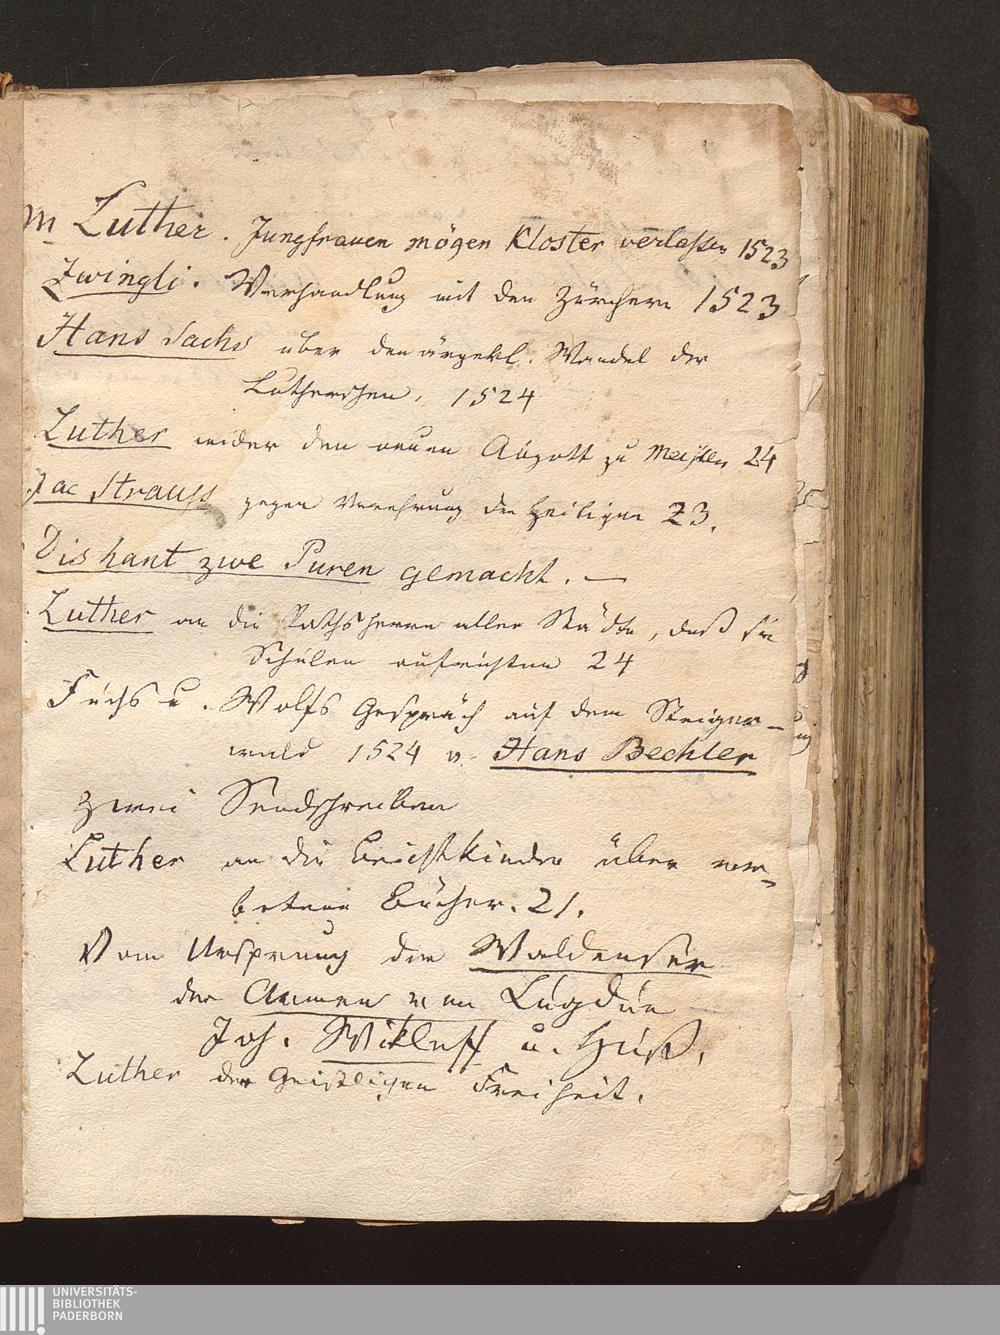 M Luther. Jungfrauen mögen Kloster verlassen 1523
Zwingli. Verhandlung mit den Zürchern 1523
Hans Sachs über den ärgerl. Wandel der
Lutherschen, 1524
Luther wider den neuen Abgott zu Meißen 24
Jac Strauss gegen Verehrung der Heiligen 23.
Dis hant zwe Puren gemacht. —
Luther an die Rathsherrn aller Städte, daß sie
Schulen aufrichten 24
Fuchs u. Wolfs Gespräch auf dem Steiger-
wald 1524 v. Hans Bechler
Zwei Sendschreiben
Luther an die Beichtkinder über ver-
botene Bücher. 21.
Vom Ursprung der Waldenser
der Armen von Lugdun
Joh. Wikleff u. Huß,
Luther der Geistligen Freiheit.
UNIVERSITÄTS-
BIBLIOTHEK
PADERBORN